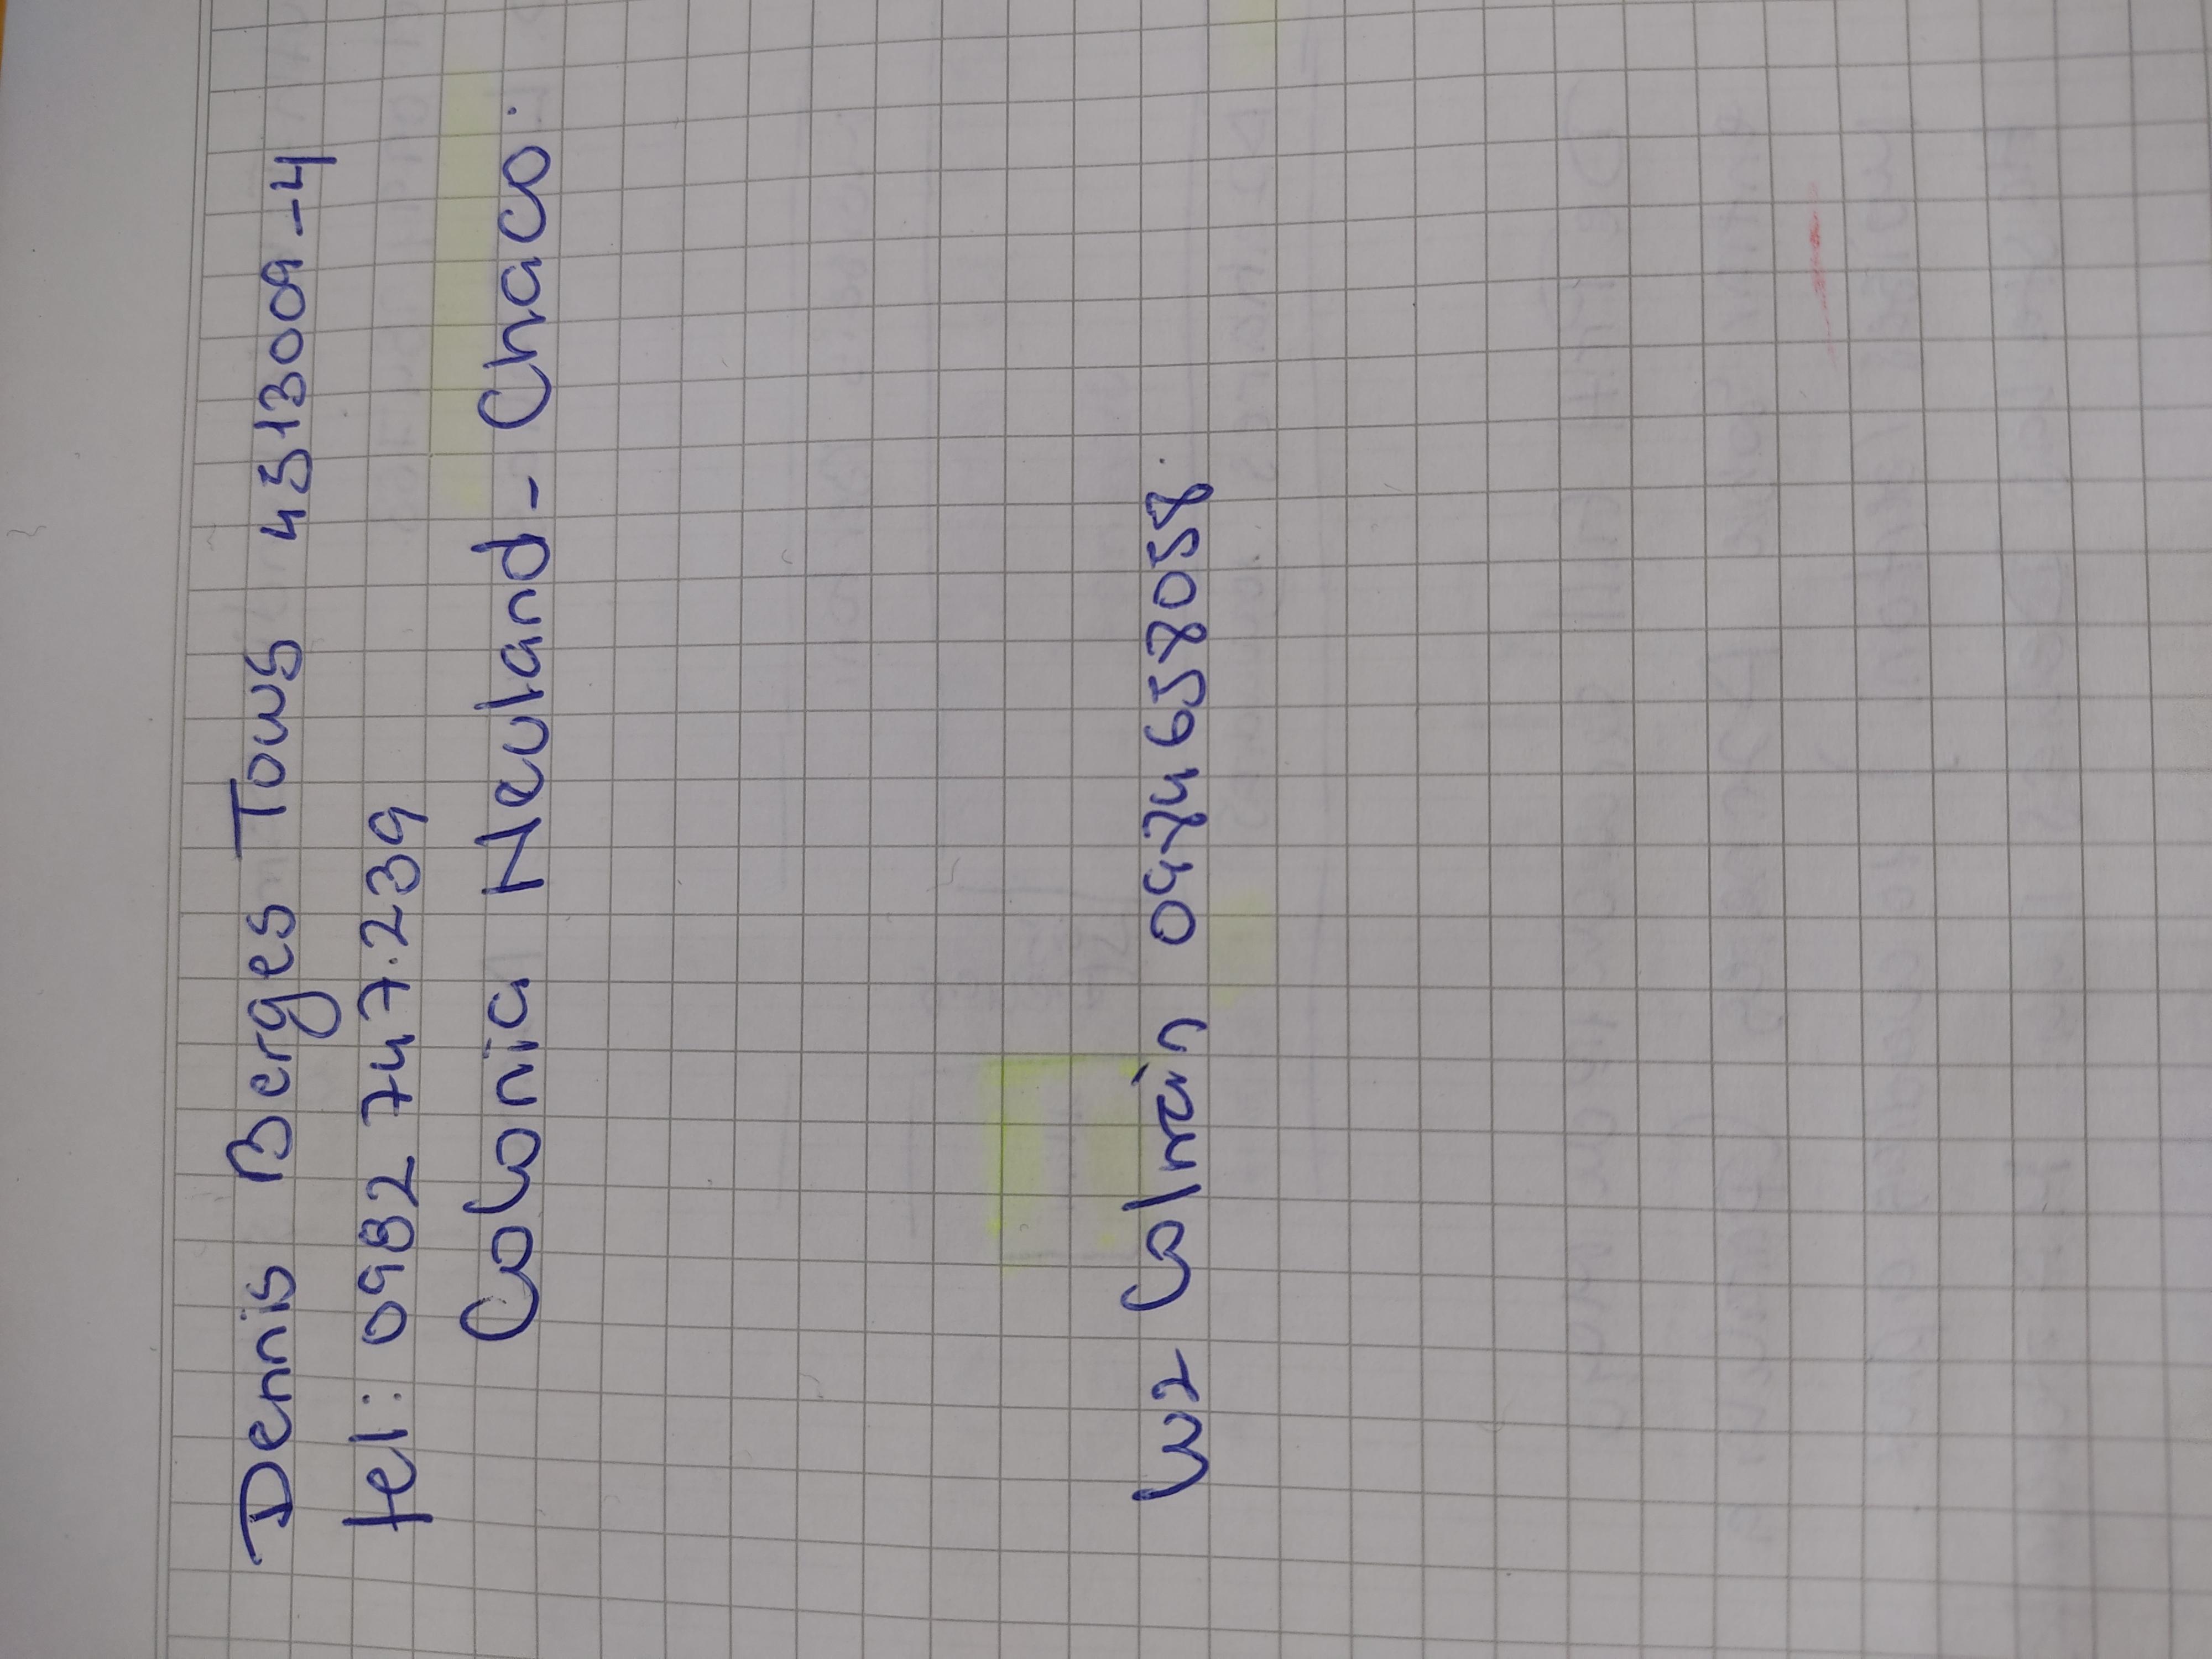 Dennis Berges Tows 4513009-4
tel: 0982 747.239
Colonia Neuland - Chaco.
Luz Colmán 0974 658058.